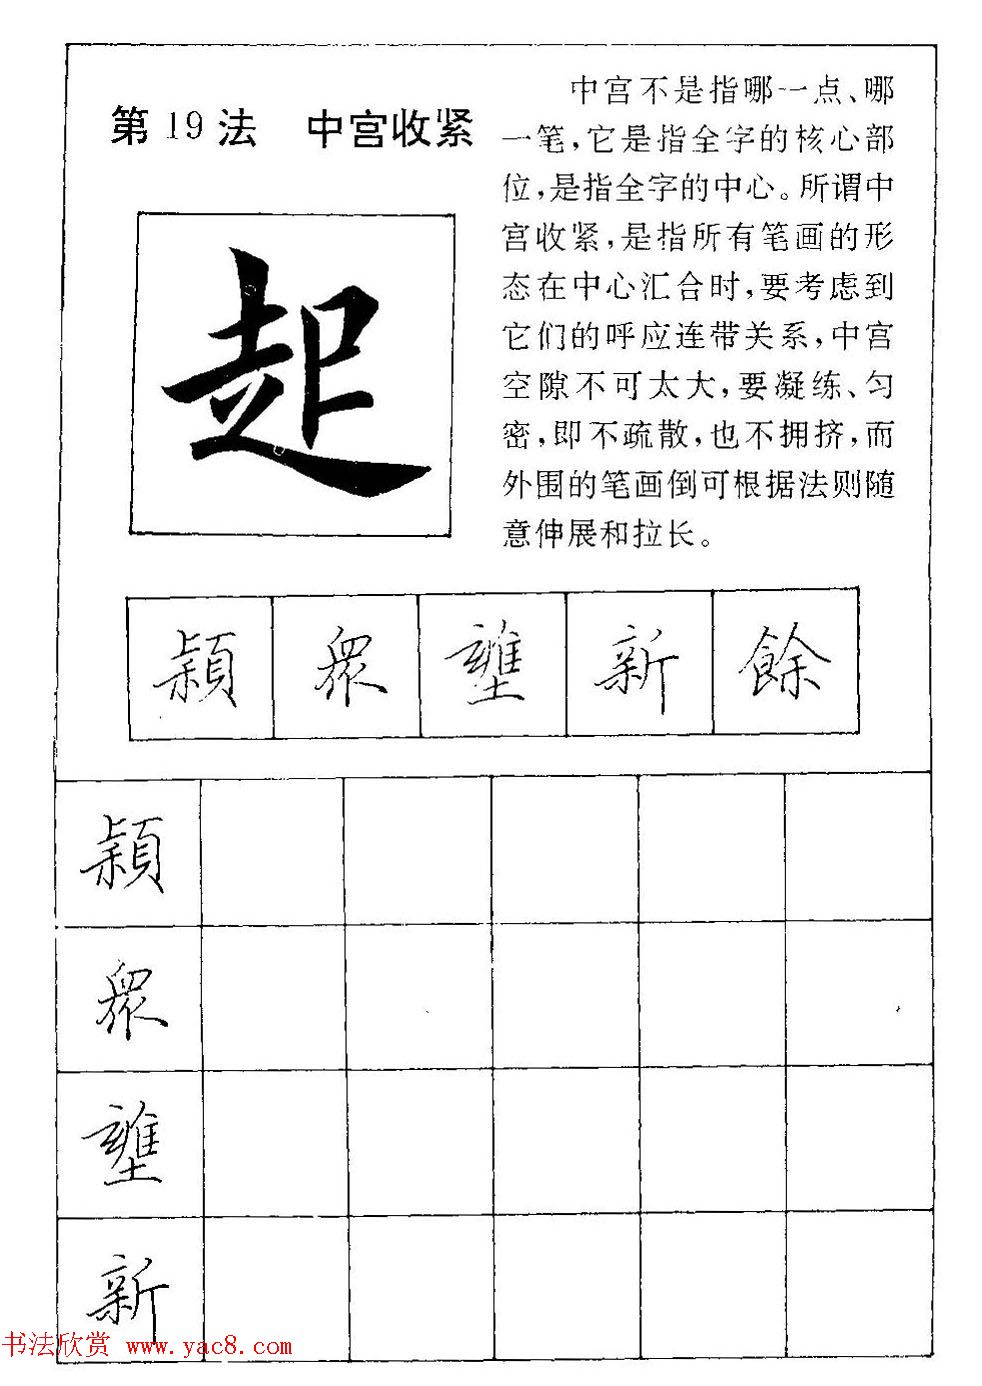 第19法　中宫收紧
中宫不是指哪一点、哪
一笔，它是指全字的核心部
位，是指全字的中心。所谓中
宫收紧，是指所有笔画的形
态在中心汇合时，要考虑到
它们的呼应连带关系，中宫
空隙不可太大，要凝练、匀
密，即不疏散，也不拥挤，而
外围的笔画倒可根据法则随
意伸展和拉长。
起
颖 眾 新 餘
颖
眾
新
书法欣赏 www.yac8.com